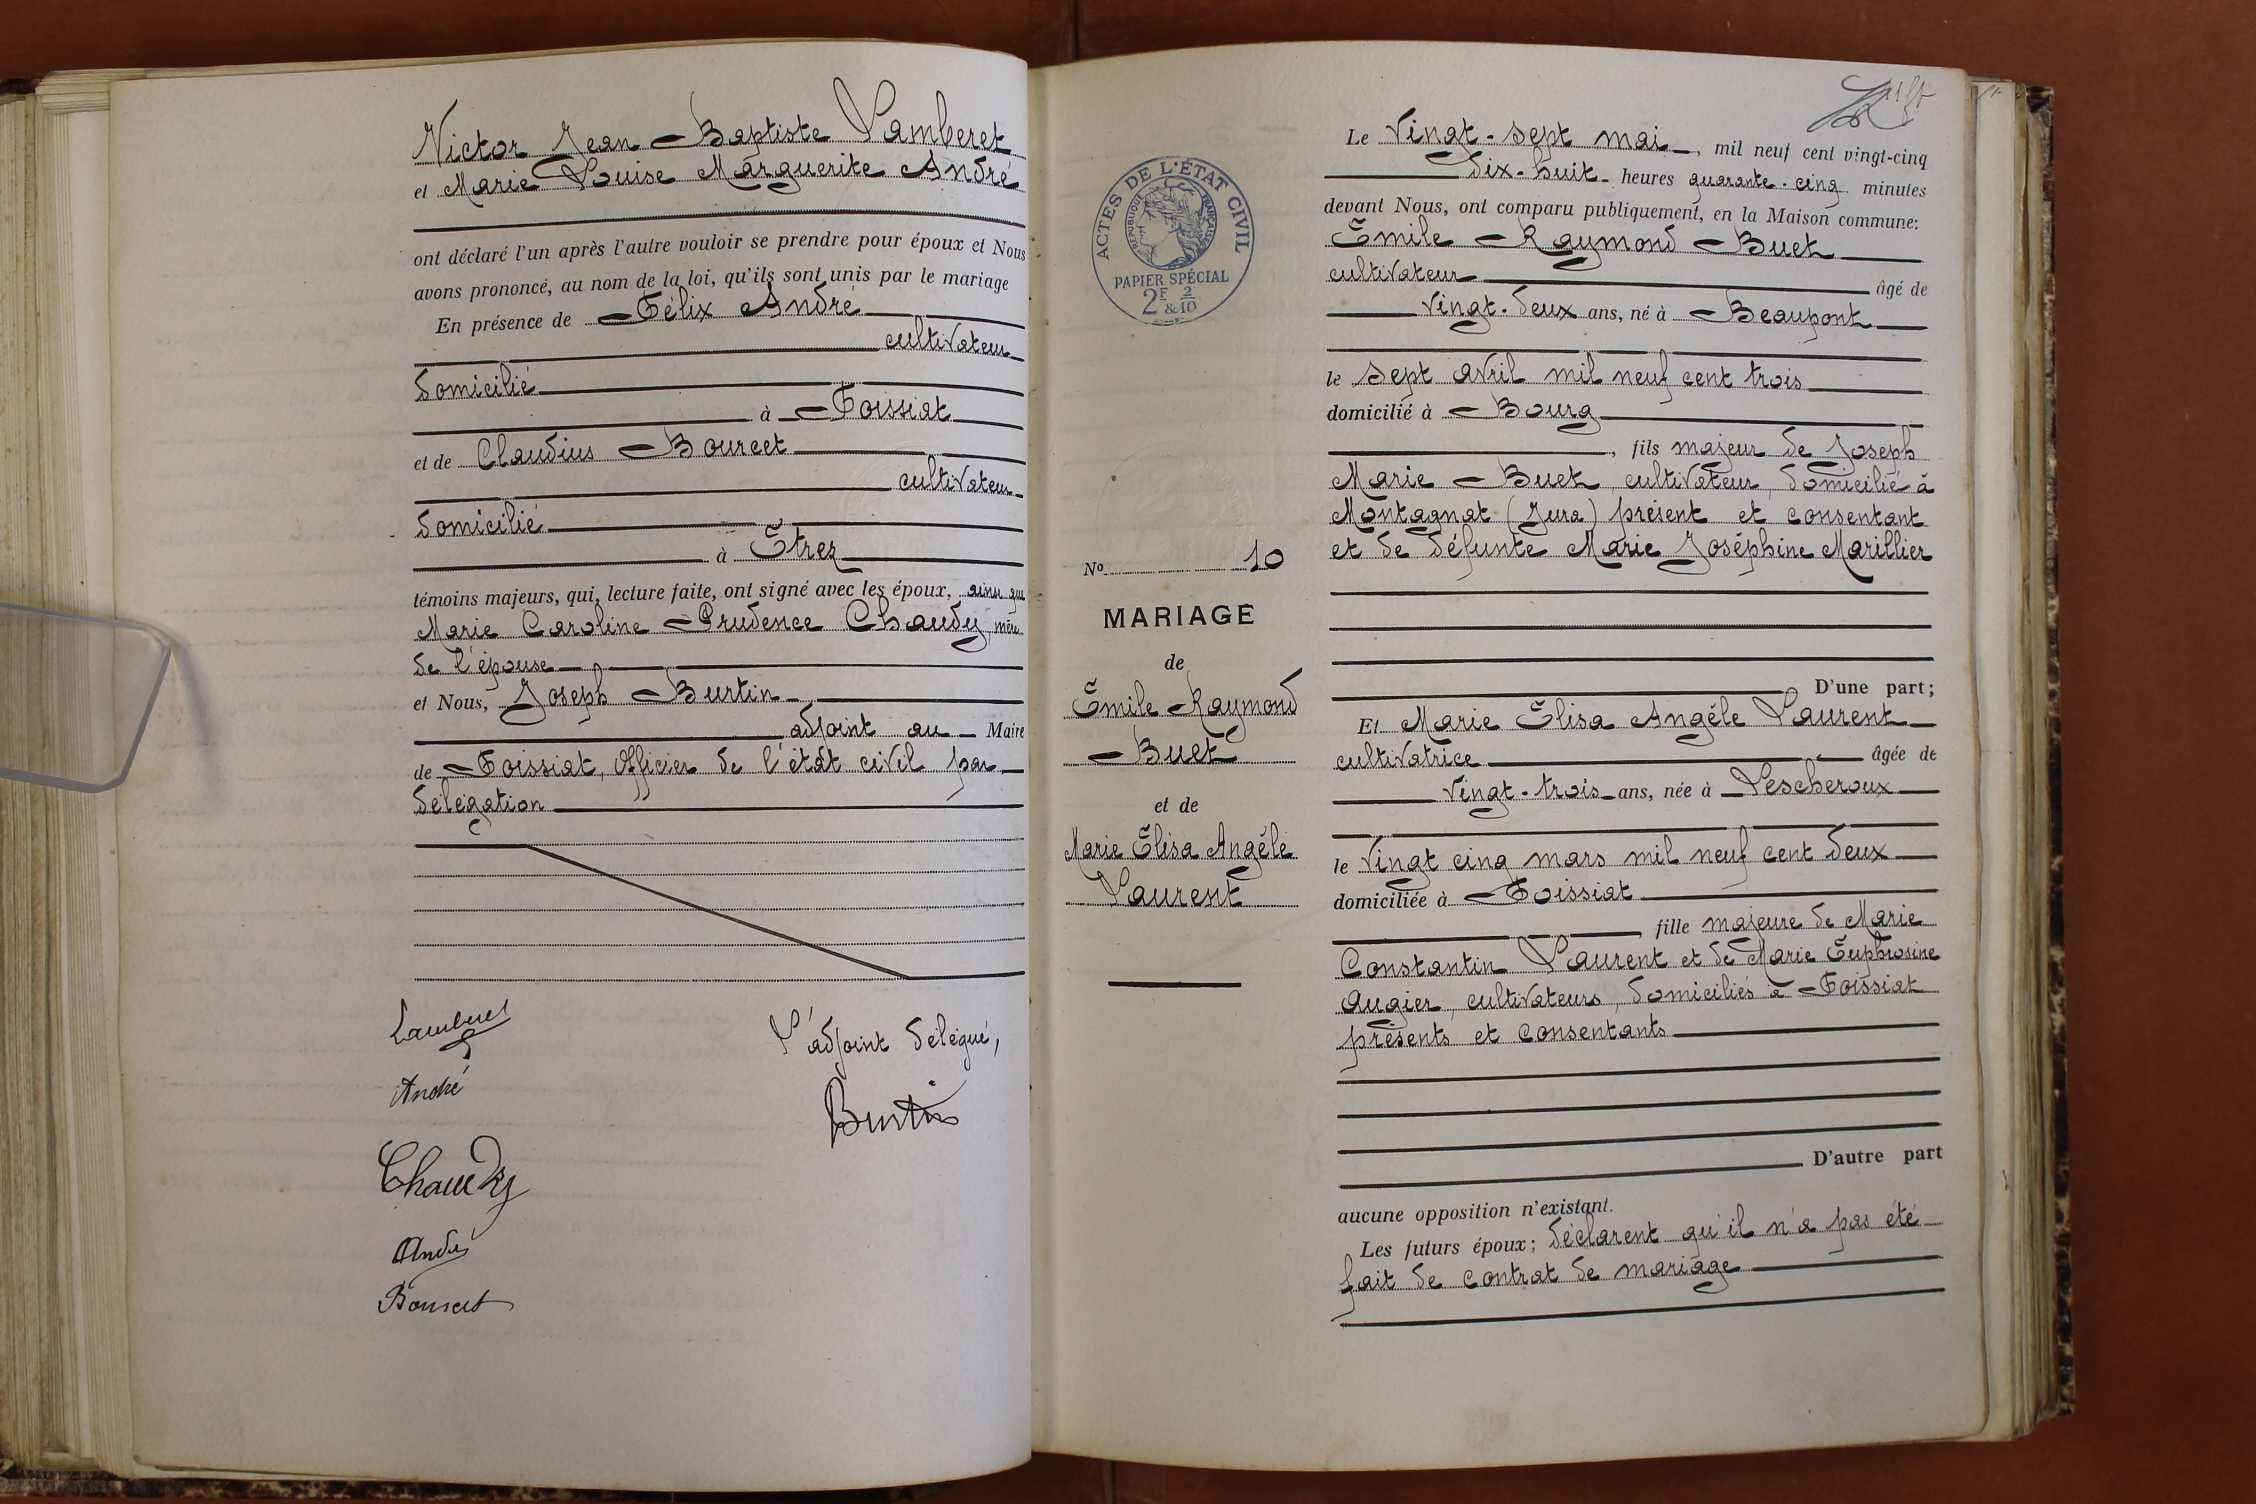 Victor Jean Baptiste Lamberet
et Marie Louise Marguerite André
ont déclaré l'un après l'autre vouloir se prendre pour époux et Nous
avons prononcé, au nom de la loi, qu'ils sont unis par le mariage
En présence de Félix André
cultivateur
domicilié
à Foissiat
et de Claudius Bourcet
cultivateur
domicilié
à Étrez
témoins majeurs, qui, lecture faite, ont signé avec les époux, ainsi que
Marie Caroline Prudence Chaudy, mère
de l'épouse
et Nous, Joseph Burtin
adjoint au Maire
de Foissiat, Officier de l'état civil par
délégation
Lamberet
L'adjoint délégué,
André
Burtin
Chaudy
André
Bourcet
ACTES DE L'ÉTAT CIVIL
RÉPUBLIQUE FRANÇAISE
PAPIER SPÉCIAL
2F & 2/10
No 10
MARIAGE
de
Émile Raymond
Buet
et de
Marie Élisa Angèle
Laurent
Le vingt-sept mai, mil neuf cent vingt-cinq
dix-huit heures quarante-cinq minutes
devant Nous, ont comparu publiquement, en la Maison commune:
Émile Raymond Buet
cultivateur âgé de
vingt-deux ans, né à Beaupont
le sept avril mil neuf cent trois
domicilié à Bourg
, fils majeur de Joseph
Marie Buet, cultivateur, domicilié à
Montagnat (Jura) présent et consentant
et de défunte Marie Joséphine Marillier
D'une part;
Et Marie Élisa Angèle Laurent
cultivatrice âgée de
vingt-trois ans, née à Lescheroux
le vingt cinq mars mil neuf cent deux
domiciliée à Foissiat
fille majeure de Marie
Constantin Laurent et de Marie Euphrosine
Augier, cultivateurs, domiciliés à Foissiat
présents et consentants
D'autre part
aucune opposition n'existant.
Les futurs époux; déclarent qu'il n'a pas été
fait de contrat de mariage